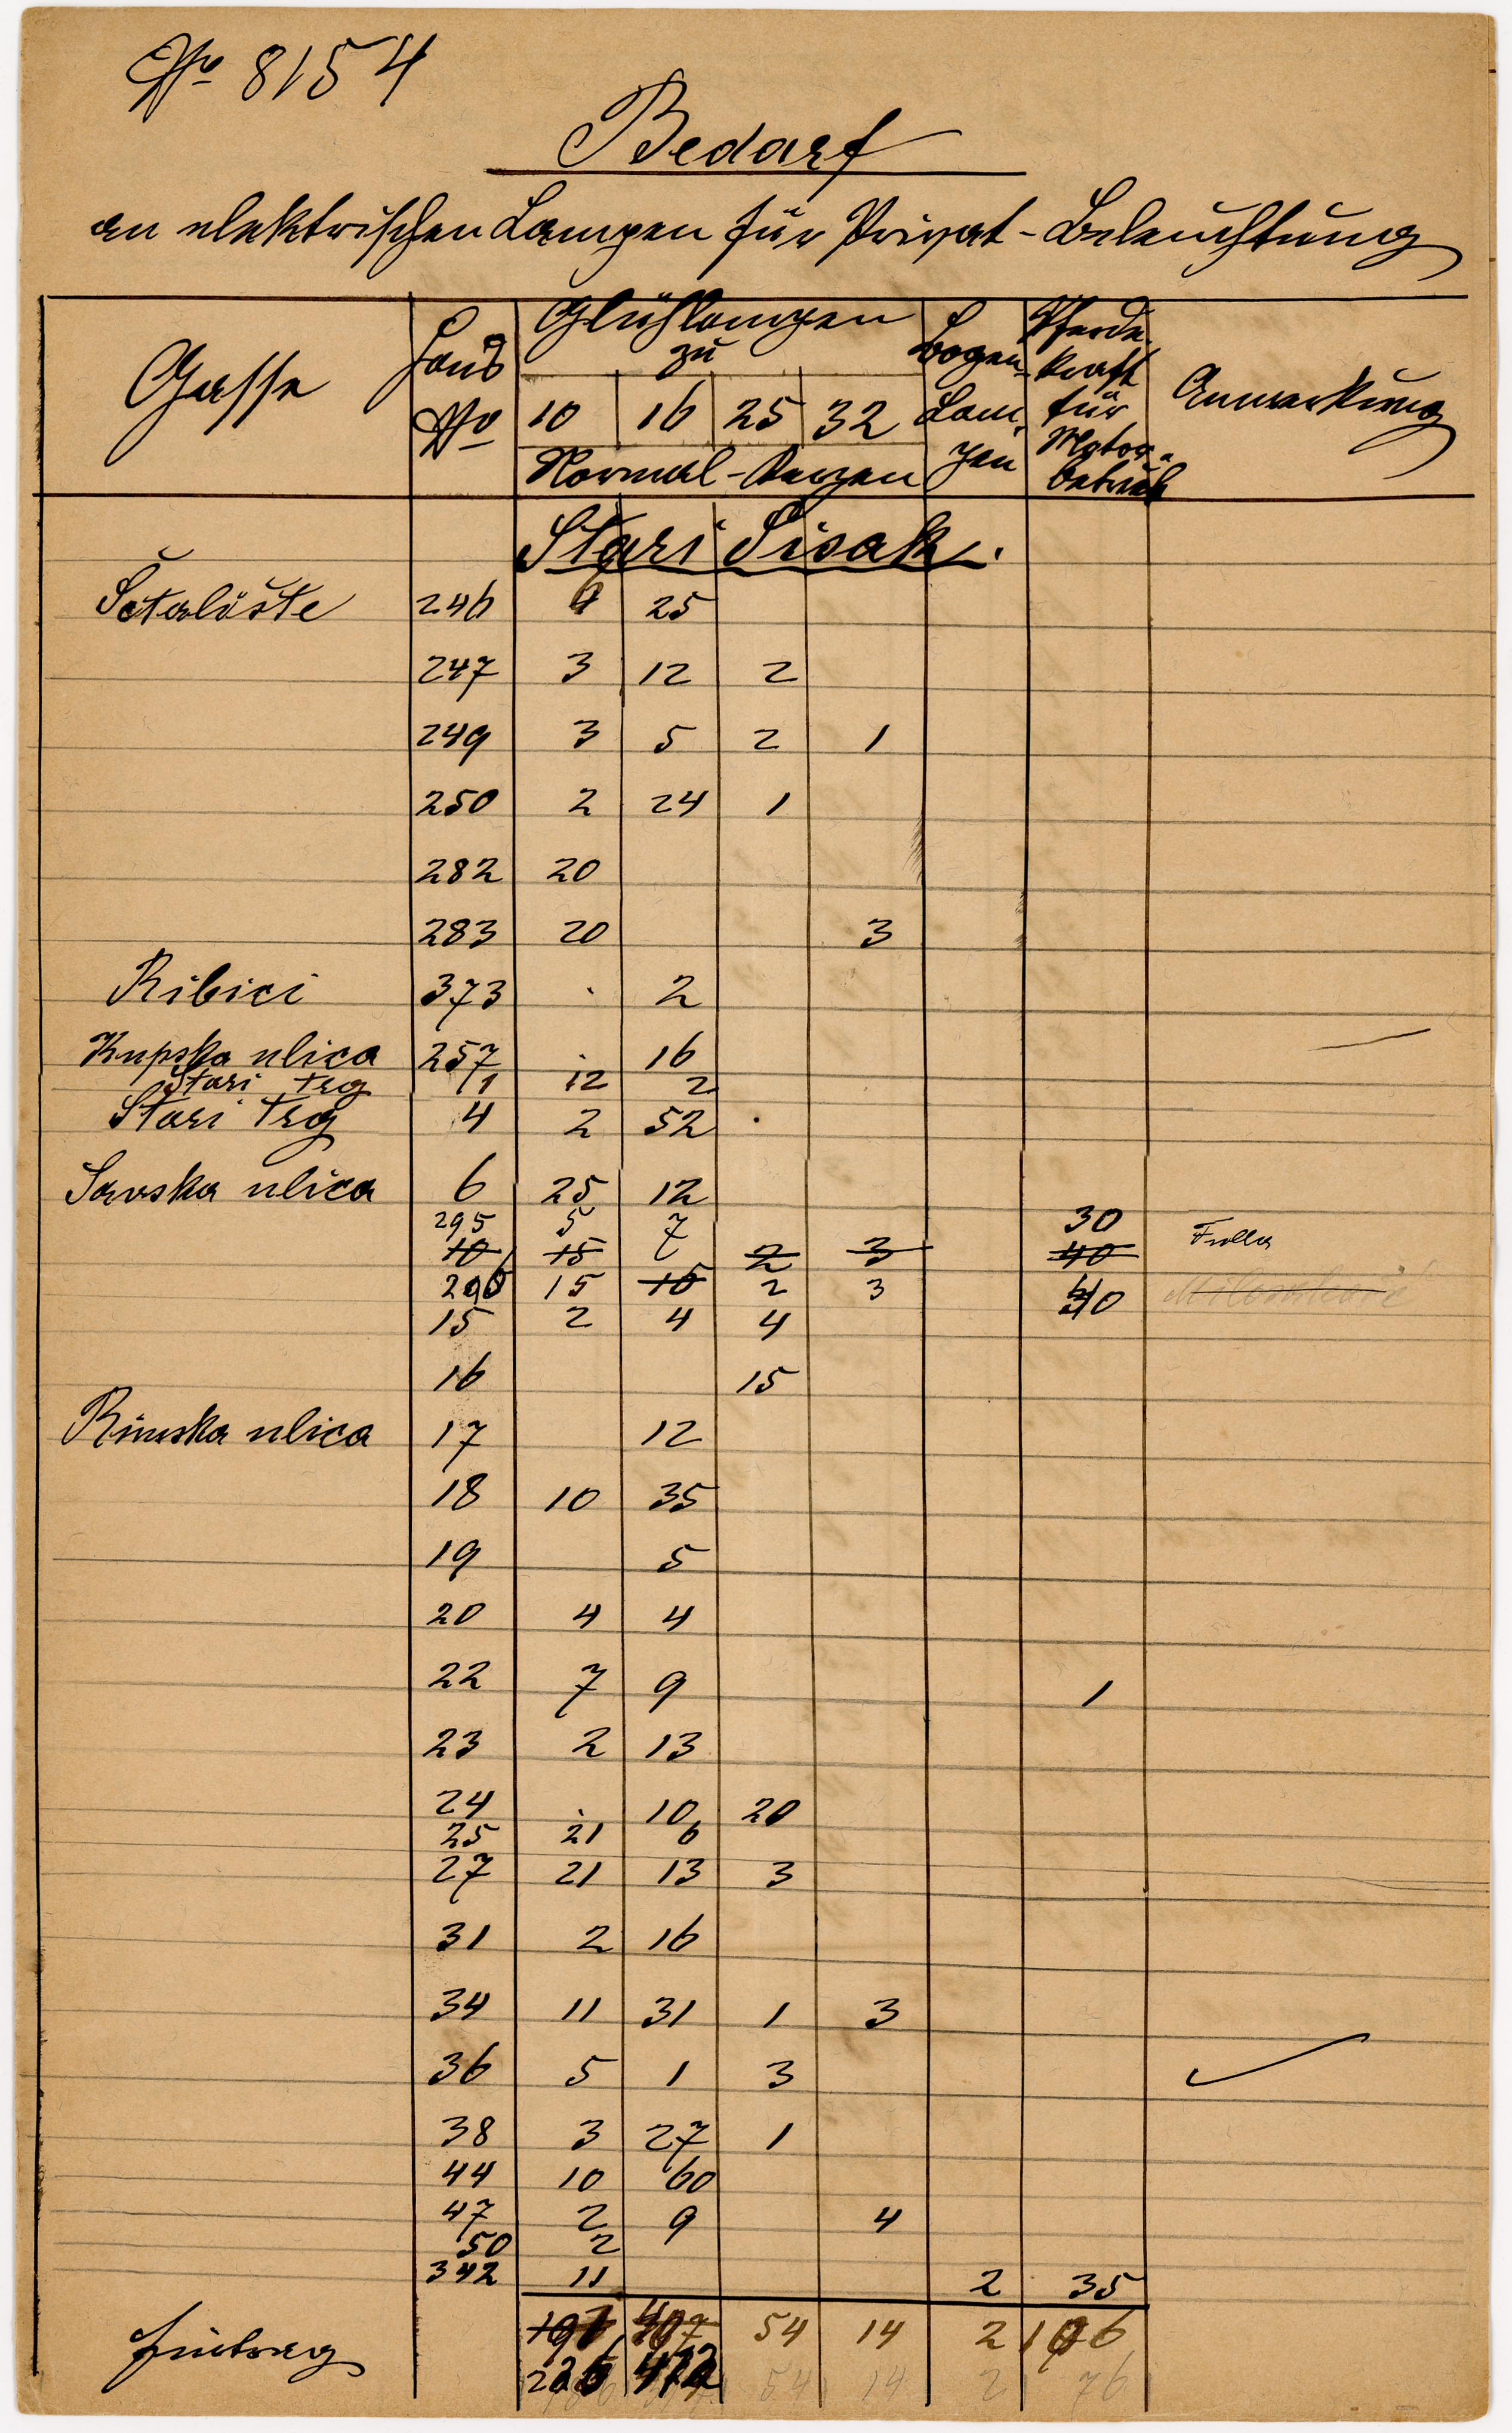 No 8154
Bedarf
an elektrischen Lampen für Privat-Beleuchtung
Gasse Haus No Glühlampen zu Bogen- Lam- pen Pferde- kraft für Motor- betrieb Anmerkung
10 16 25 32
Normal-Kerzen
Stari Sisak.
Šetalište 246 25
247 3 12 2
249 3 5 2 1
250 2 24 1
282 20
283 20 3
Ribici 373 . 2
Kupska ulica 257 . 16
Stari trg 1 12 2
Stari trg 4 2 52 .
Savska ulica 6 25 12
295 5 7 30 Fulla
10 15 2 3 40
296 15 10 2 3 40
15 2 4 4
16 15
Rimska ulica 17 12
18 10 35
19 5
20 4 4
22 7 9 1
23 2 13
24 . 10 20
25 21 6
27 21 13 3
31 2 16
34 11 31 1 3
36 5 1 3
38 3 27 1
44 10 60
47 2 9 4
50 2
342 11 2 35
Fürtrag 407 54 14 2 106
54 14 2 76